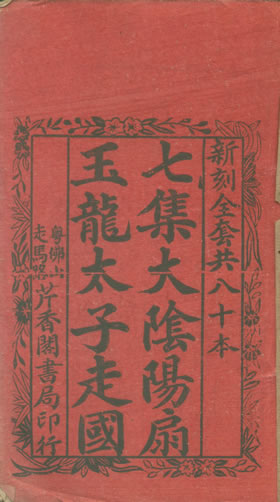 新刻全套共八十本
七集大陰陽扇
玉龍太子走國
粤佛山
走馬路
芹香閣書局印行